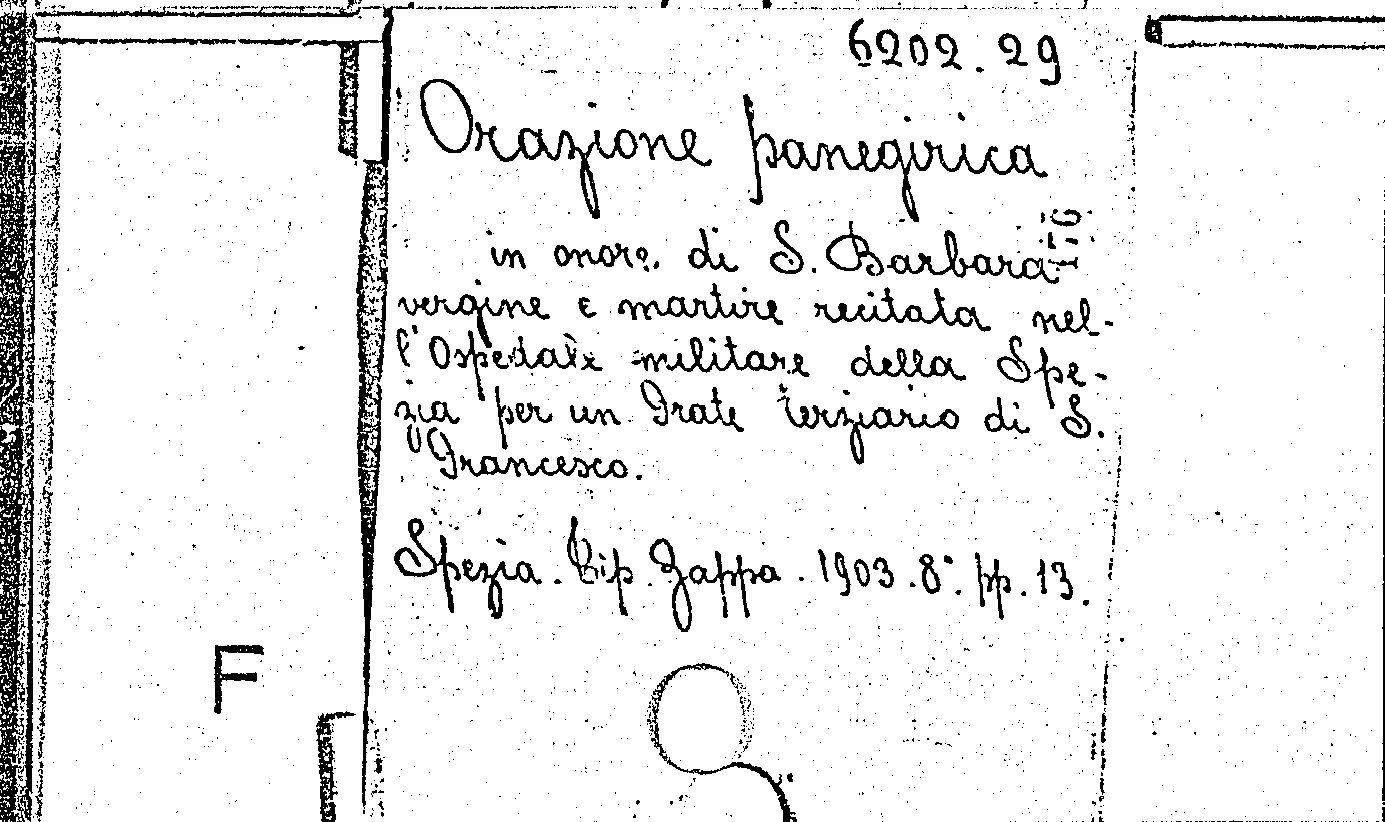 6202.29
Orazione panegirica
in onore di S. Barbara
vergine e martire recitata nel-
l'Ospedale militare della Spe-
zia per un Frate terziario di S.
Francesco.
Spezia. Tip. Zappa. 1903. 8°. pp. 13.
F